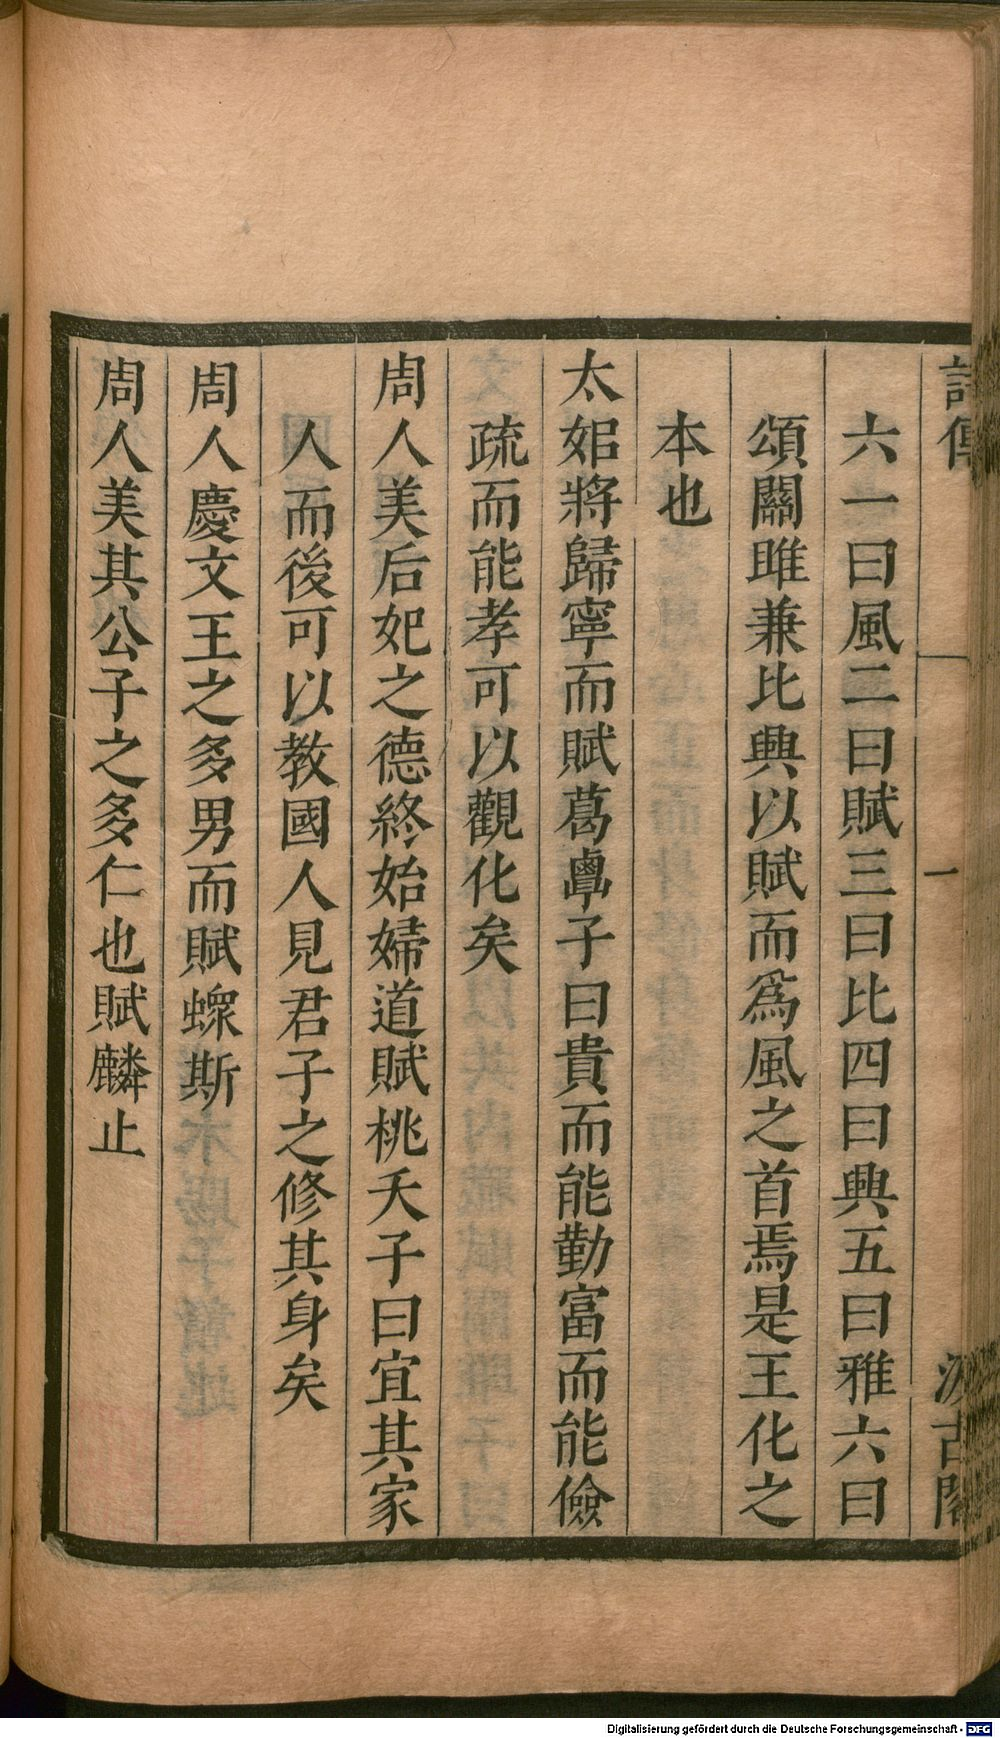 詩傳
一
汲古閣
六一曰風二曰賦三曰比四曰興五曰雅六曰
頌關雎兼比興以賦而爲風之首焉是王化之
本也
太姒將歸寧而賦葛覃子曰貴而能勤富而能儉
疏而能孝可以觀化矣
周人美后妃之德終始婦道賦桃夭子曰宜其家
人而後可以教國人見君子之修其身矣
周人慶文王之多男而賦螽斯
周人美其公子之多仁也賦麟止
Digitalisierung gefördert durch die Deutsche Forschungsgemeinschaft - DFG